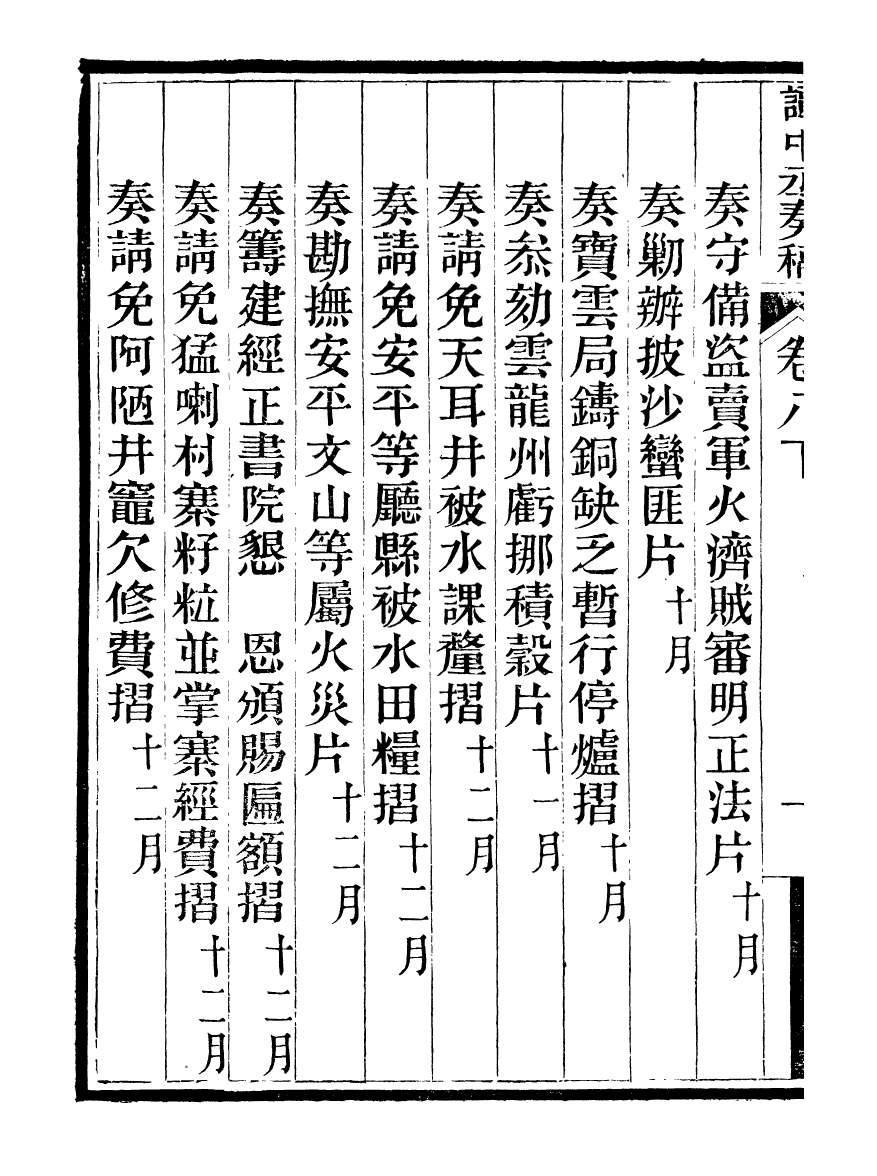 譚中丞奏稿 卷八下 一
奏守備盜賣軍火濟賊審明正法片十月
奏剿辦披沙蠻匪片十月
奏寶雲局鑄銅缺乏暫行停爐摺十月
奏叅劾雲龍州虧挪積穀片十一月
奏請免天耳井被水課釐摺十二月
奏請免安平等廳縣被水田糧摺十二月
奏勘撫安平文山等屬火災片十二月
奏籌建經正書院懇　恩頒賜匾額摺十二月
奏請免猛喇村寨籽粒並掌寨經費摺十二月
奏請免阿陋井竈欠修費摺十二月